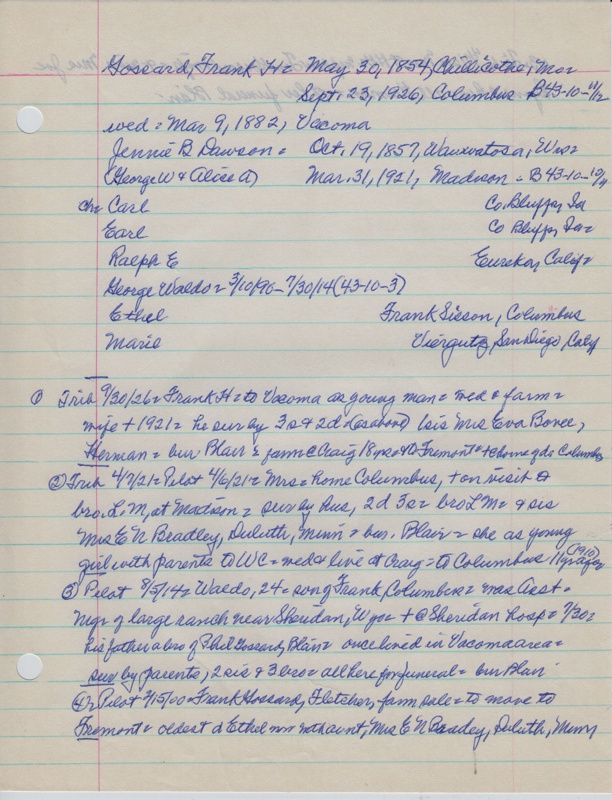 Gossard, Frank H = May 30, 1854, Chillicothe, Mo =
Sept. 23, 1926, Columbus B43-10-11/12
wed = Mar 9, 1882, Vacoma
Jennie B Dawson = Oct. 19, 1857, Wauwatosa, Wis =
(George W & Alice A) Mar. 31, 1921, Madison = B43-10-10/9
ch = Carl Co. Bluffs, Ia
Earl Co Bluffs, Ia =
Ralph E Eureka, Calif =
George Waldo = 3/10/90 - 7/30/14 (43-10-3)
Ethel Frank Sisson, Columbus
Marie Viergutz, San Diego, Calif
① Trib 9/30/26 = Frank H = to Vacoma as young man = wed & farm =
wife + 1921 = he sur by 3s & 2d (as above) 1sis Mrs Eva Bovee,
Herman = bur Blair = farm @ Craig 18 yrs & to Fremont = + home of d Columbus
② Trib 4/7/21 = Pilot 4/6/21 = Mrs = home Columbus, + on visit @
bro. L. M, at Madison = sur by hus, 2d 3s = bro L M = & sis
Mrs E N Bradley, Duluth, Minn = bur. Blair = she as young
girl with parents to WC = wed & live at Craig = to Columbus 11 yrs ago (1910)
③ Pilot 8/5/14 = Waldo, 24 = son of Frank, Columbus = was Asst =
Mgr of large ranch near Sheridan, Wyo = + @ Sheridan hosp = 7/30 =
his father a bro of Phil Gossard, Blair = once lived in Vacoma area =
sur by parents, 2 sis & 3 bro = all here for funeral = bur Blair
④ Pilot 2/15/00 = Frank Gossard, Fletcher, farm sale = to move to
Fremont = oldest d Ethel now with aunt, Mrs E N Bradley, Duluth, Minn